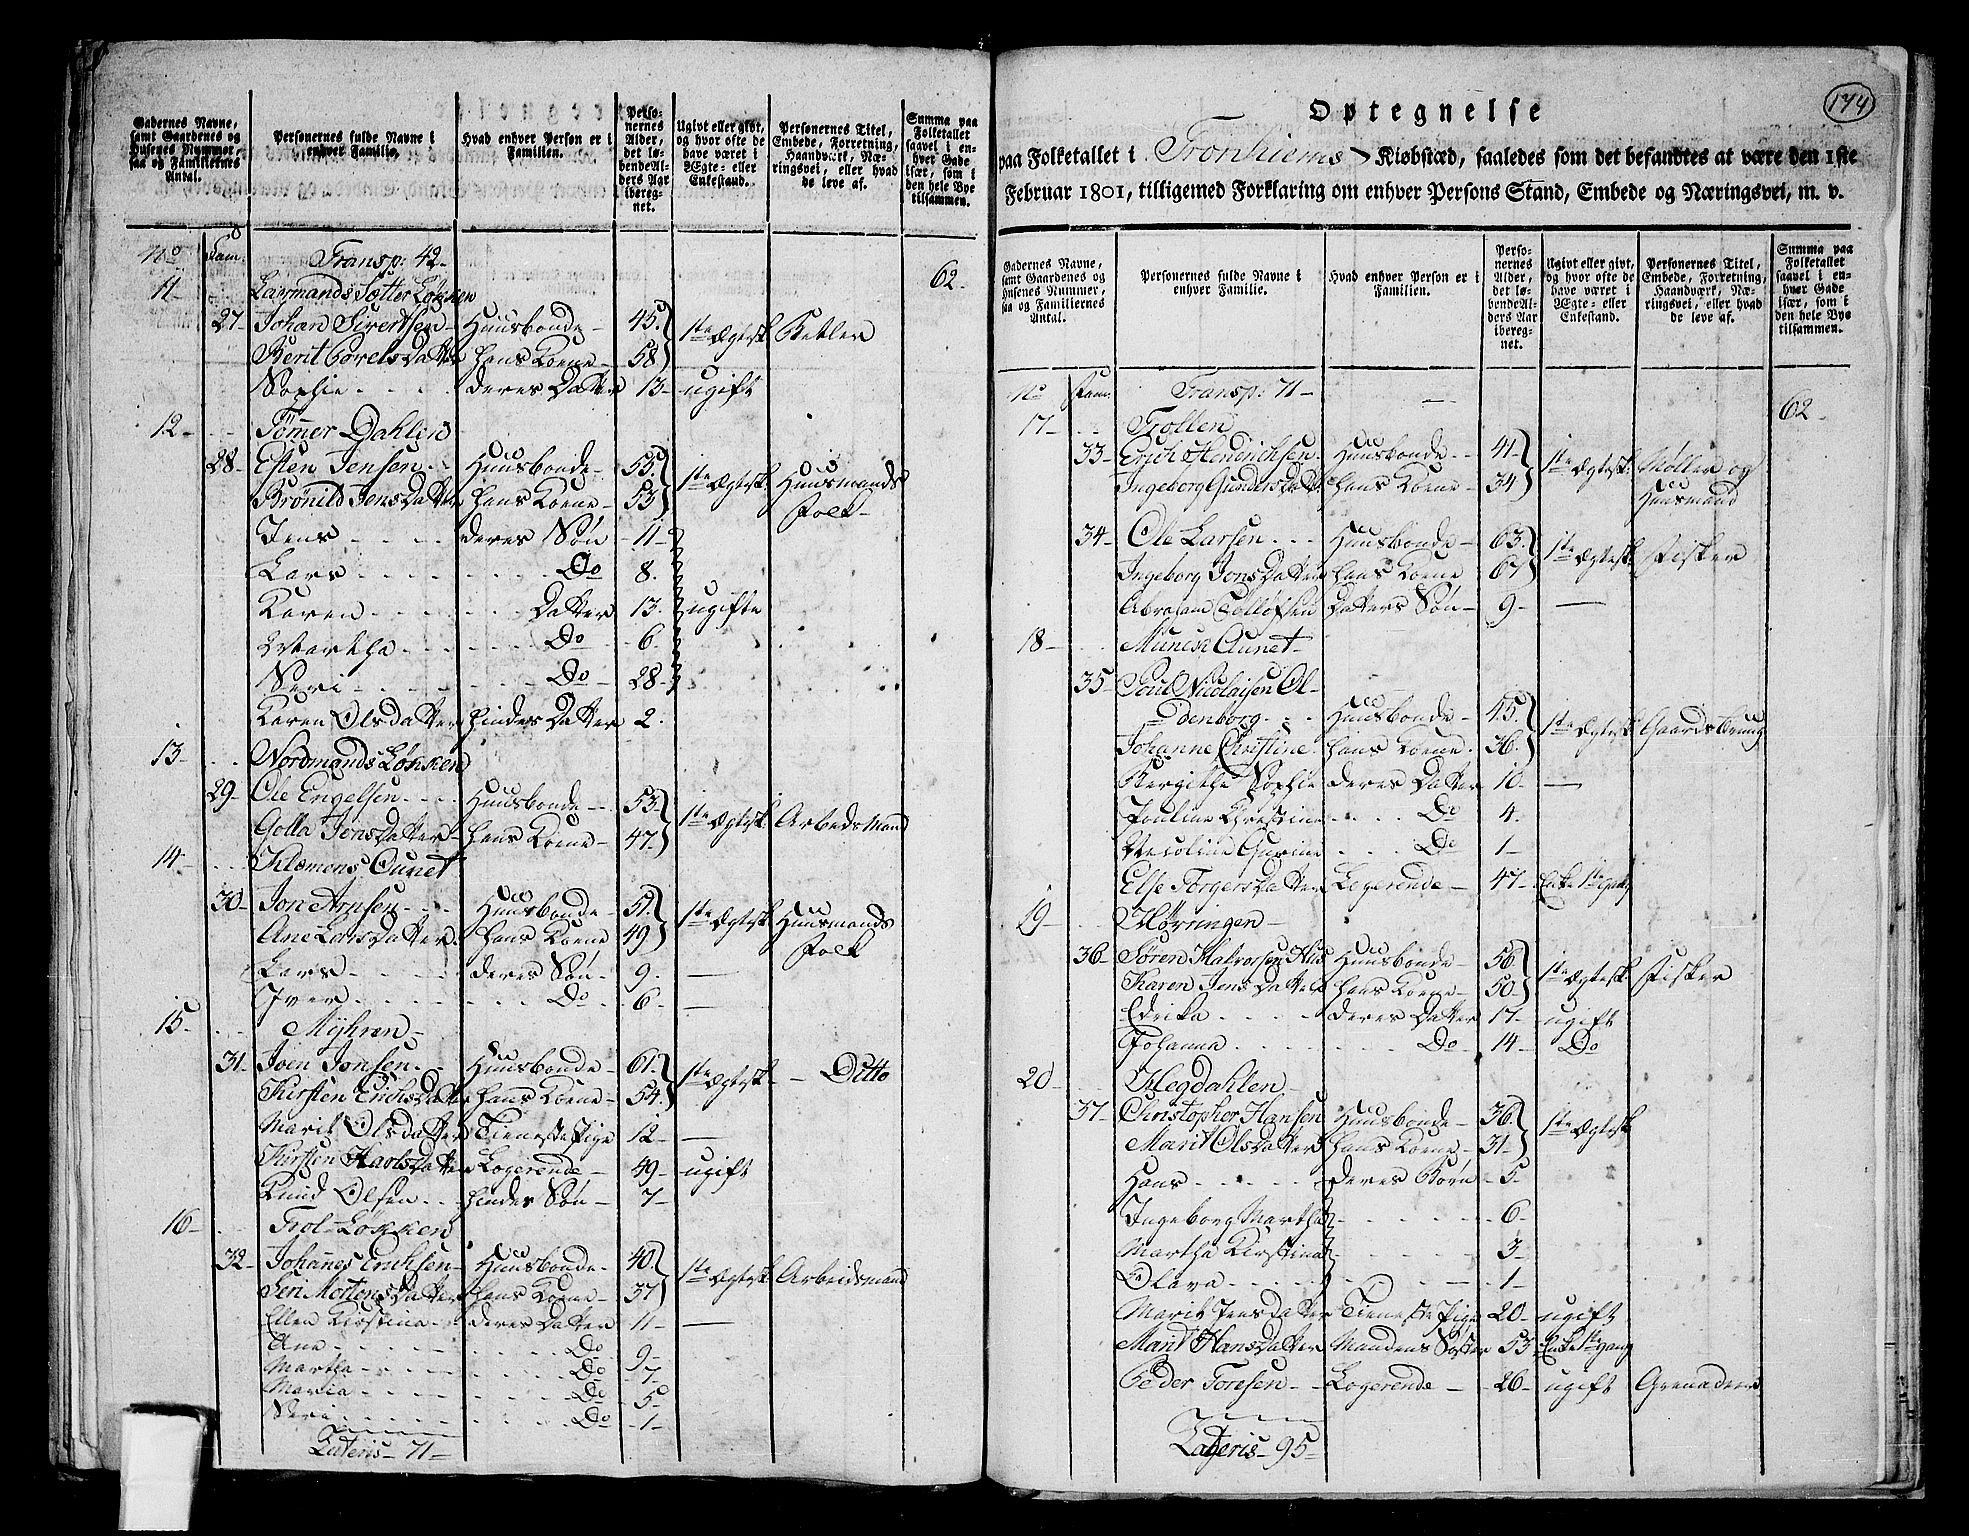 Gadernes Navne, samt Gaardenes og Husenes Nummer, saa og Familiernes Antal.
Personernes fulde Navne i enhver Familie.
Hvad enhver Person er i Familien.
Personernes Alder, det løbende Alders Aar iberegnet.
Ugivt eller givt, og hvor ofte de have været i Ægte- eller Enkestand.
Personernes Titel, Embede, Forretning, Haandværk, Næringsvei, eller hvad de leve af.
Summa paa Folketallet saavel i enhver Gade især, som i den hele Bye tilsammen.
No Fam: Transp: 42- 62-
11- Laxmands Sætter Løkken
27- Johan Sivertsen- Huusbonde- 45. 1ste Ægtesk
Berit DaTTer hans Kone- 58
Sophie deres DaTTer 13- ugift
12- Tømer Dahlen
28- Esten Jensen Huusbonde- 55. 1ste Ægtesk. Huusmands
Bronild JensDaTTer hans Kone- 53 Folk-
Jens deres Søn -11-
Lars Do 8.
Karen DaTTer 13. ugifte
Martha Do -6-
Seri Do -28-
Karen OlsdaTTer hindes DaTTer 2.
13- Nordmands Løkken
29- Ole Engelsen Huusbonde- 53. 1ste Ægtesk ArbedsMand
Golla JonsDaTTer- hans Kone- 47-
14- Klemons Aunet
30- Jon Arnsen Huusbonde- 51. 1ste Ægtesk Huusmands
Ane LarsDaTTer hans Kone 49 Folk
Lars deres Søn- 9. —
Iver Do -6- —
15- Mÿhren-
31. Joen Jonsen Huusbonde- 61. 1ste Ægtesk- Ditto
Kirsten ErichsDaTTer hans Kone- 54.
Marit OlsdaTTer Tieneste Pige 12- —
Kirsten KarlsDaTTer Logerende- 49- ugift
Knud Olsen hindes Søn- 7-
16- Trol-Løkken
32- Johanes Erichsen- Huusbonde- 40. 1ste Ægtesk Arbeidsmand
Seri MortensDaTTer hans Kone- 37
Ellen Kirstina deres DaTTer 11- —
Ane Do 9-
Martha Do -7-
Maria Do -5-
Seri Do -1-
Lateris- 71-
174
Optegnelse
paa Folketallet i Tronhiems Kiøbstæd, saaledes som det befandtes at være den 1ste
Februar 1801, tilligemed Forklaring om enhver Persons Stand, Embede og Næringsvei, m. v.
Gadernes Navne, samt Gaardenes og Husenes Nummer, saa og Familiernes Antal.
Personernes fulde Navne i enhver Familie.
Hvad enhver Person er i Familien.
Personernes Alder, det løbende Alders Aar iberegnet.
Ugivt eller givt, og hvor ofte de have været i Ægte- eller Enkestand.
Personernes Titel, Embede, Forretning, Haandværk, Næringsvei, eller hvad de leve af.
Summa paa Folketallet saavel i enhver Gade især, som i den hele Bye tilsammen.
No Fam: Transp: 71- 62-
17- Trollen
33- Erich Hendrichsen Huusbonde- 41- 1ste Ægtesk: Møller og
Ingeborg GundersDatt: hans Kone- 34 Huusmand
34- Ole Larsen Huusbonde- 63. 1ste Ægtesk. Fisker
Ingeborg JonsDaTTer hans Kone 67
Abraham Tolløfsen DaTTers Søn- 9- —
18- Munch Aunet-
35- Poul Nicolaisen Ol-
denborg Huusbonde- 45. 1ste Ægtesk Gaardsbrug
Johanne Christine hans Kone. 36.
Bergithe Sophie deres DaTTer 10- —
Pouline Christine Do 4.
Nicoline Gurine Do 1-
Else TorgersDaTTer Logerende- 47- Enke 1ste gang
19- Hørringen-
36- Søren Halvorsen Hus Huusbonde- 56. 1ste Ægtesk. Fisker
Karen JensDaTTer hans Kone- 50.
Edrika deres DaTTer 17- ugift
Johanna Do -14- Do
20- Hegdahlen-
37- Christopher Hansen Huusbonde- 36. 1ste Ægtesk
Marit OlsDaTTer hans Kone- 31-
Hans deres Børn -5-
Ingeborg Martha -6-
Martha Kirstina 3-
Olava -1-
Marit JensdaTTer Tieneste Pige 20- ugift
Marit HansDaTTer Mandens Søster 53 Enke 1ste gang
Peder Toresen- Logerende- 26- ugift Grenadeer
Lateris- 95-